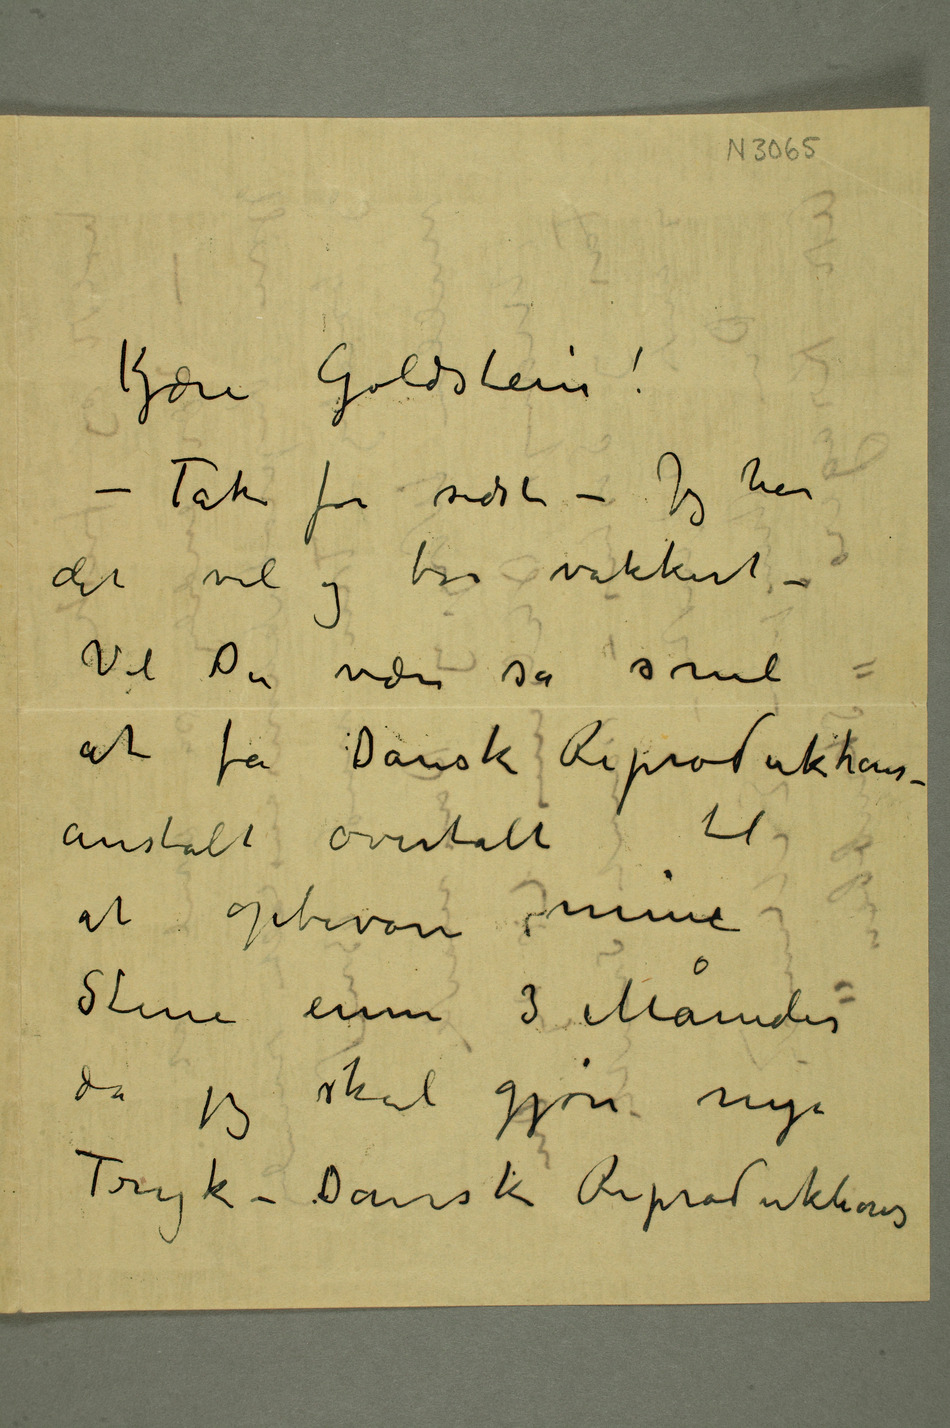 N3065
Kjære Goldstein!
– Tak for sidst – Jeg har
det vel og bor vakkert –
Vil Du være så snil
at få Dansk Reproduktions-
anstalt overtalt til
at opbevare mine
Stene ennu 3 Måneder
da jeg skal gjøre nye
Tryk – Dansk Reproduktions